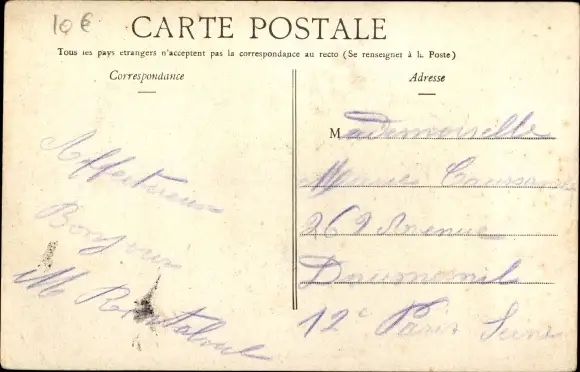 10€
CARTE POSTALE
Tous les pays etrangers n'acceptent pas la correspondance au recto (Se renseigner à la Poste)
Correspondance
Adresse
Affectueux
Bonjour
M
Mademoiselle
262 Avenue
Daumesnil
12e Paris Seine